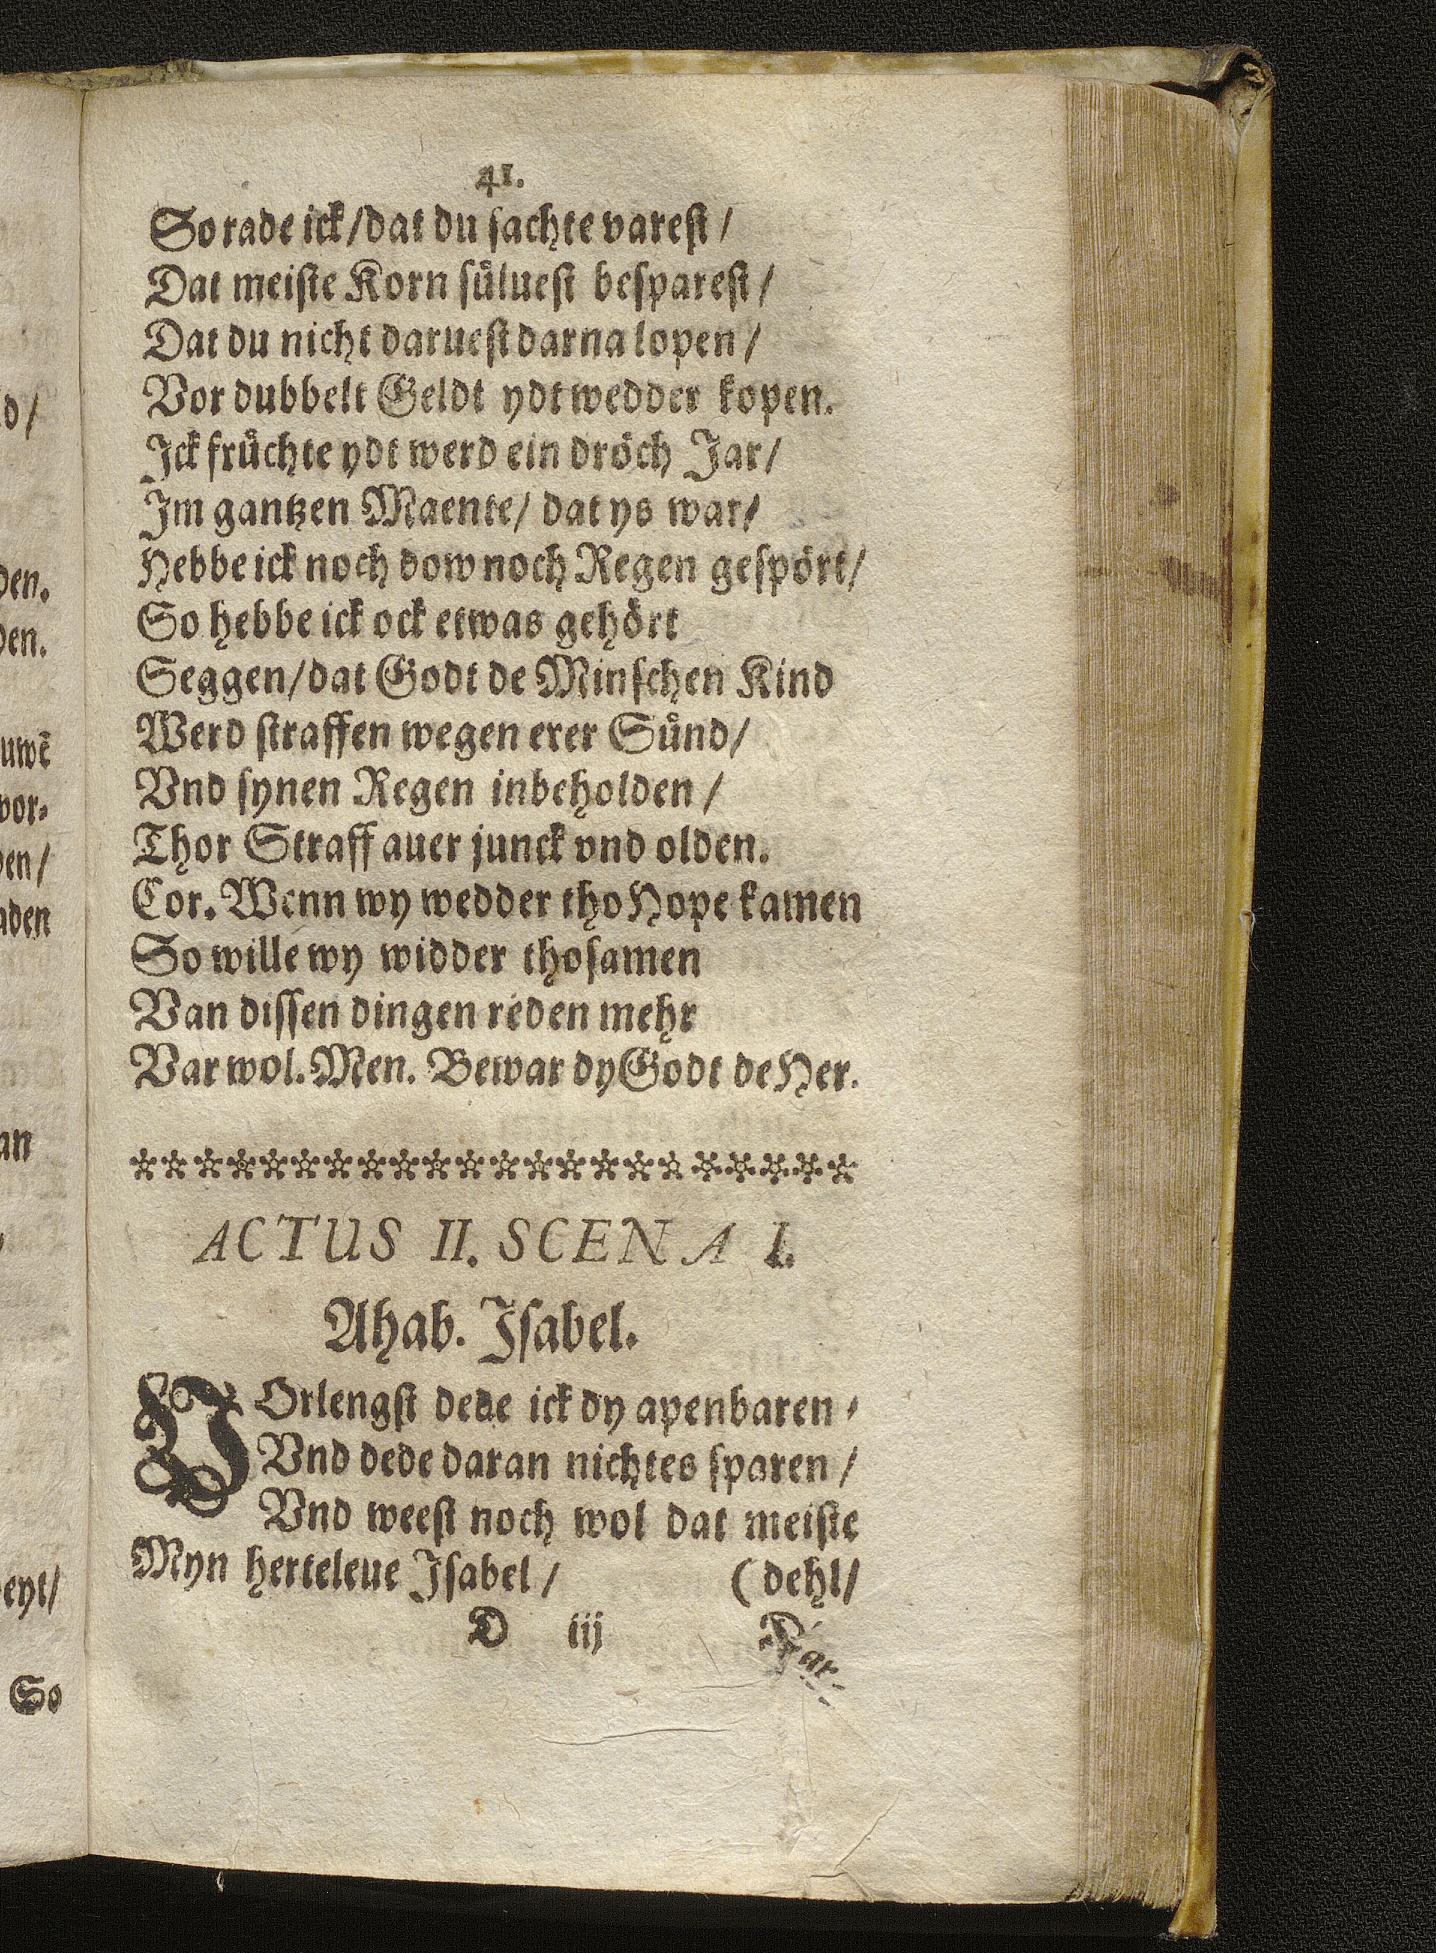 41.
So rade ick/dat du sachte varest/
Dat meiste Korn süluest besparest/
Dat du nicht daruest darna lopen/
Vor dubbelt Geldt ydt wedder kopen.
Ick früchte ydt werd ein dröch Jar/
Im gantzen Maente/ dat ys war/
Hebbe ick noch dow noch Regen gespört/
So hebbe ick ock etwas gehört
Seggen/dat Godt de Minschen Kind
Werd straffen wegen erer Sünd/
Vnd synen Regen inbeholden/
Thor Straff auer junck vnd olden.
Cor. Wenn wy wedder tho Hope kamen
So wille wy widder thosamen
Van dissen dingen reden mehr
Var wol. Men. Bewar dy Godt de Her.
ACTUS II. SCENA I.
Ahab. Isabel.
VOrlengst dede ick dy apenbaren/
Vnd dede daran nichtes sparen/
Vnd weest noch wol dat meiste
Myn herteleue Isabel/ (dehl/
D iij Dar-
d/
den.
den.
uwē
vor-
den/
aden
an
eyt/
So